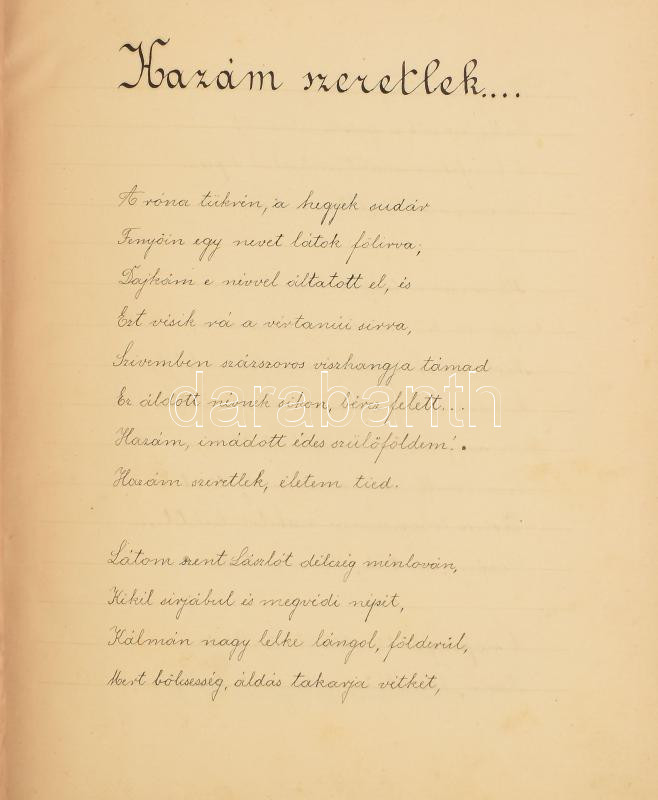 Hazám szeretlek....
A róna tükrén, a hegyek sudár
Fenyőin egy nevet látok fölirva;
Dajkám e névvel áltatott el, és
Ezt vésik rá a vértanúi sirra,
Szivemben százszoros viszhangja támad
Ez áldott névnek sikon, bércz felett...
Hazám, imádott édes szülőföldem!.
Hazám szeretlek, életem tied.
Látom szent Lászlót délczeg ménlován,
Kikél sirjábul és megvédi népit,
Kálmán nagy lelke lángol, földerül,
Mert bölcsesség, áldás takarja vétkét,
darabanth